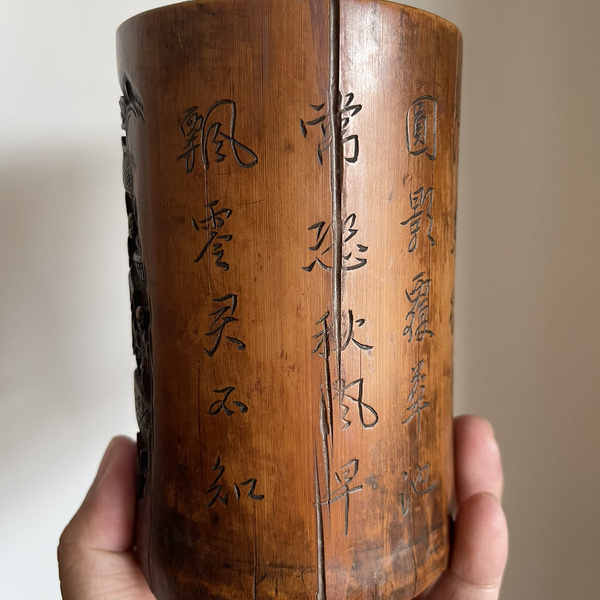 圓影覆華池
常恐秋風早
飄零君不知